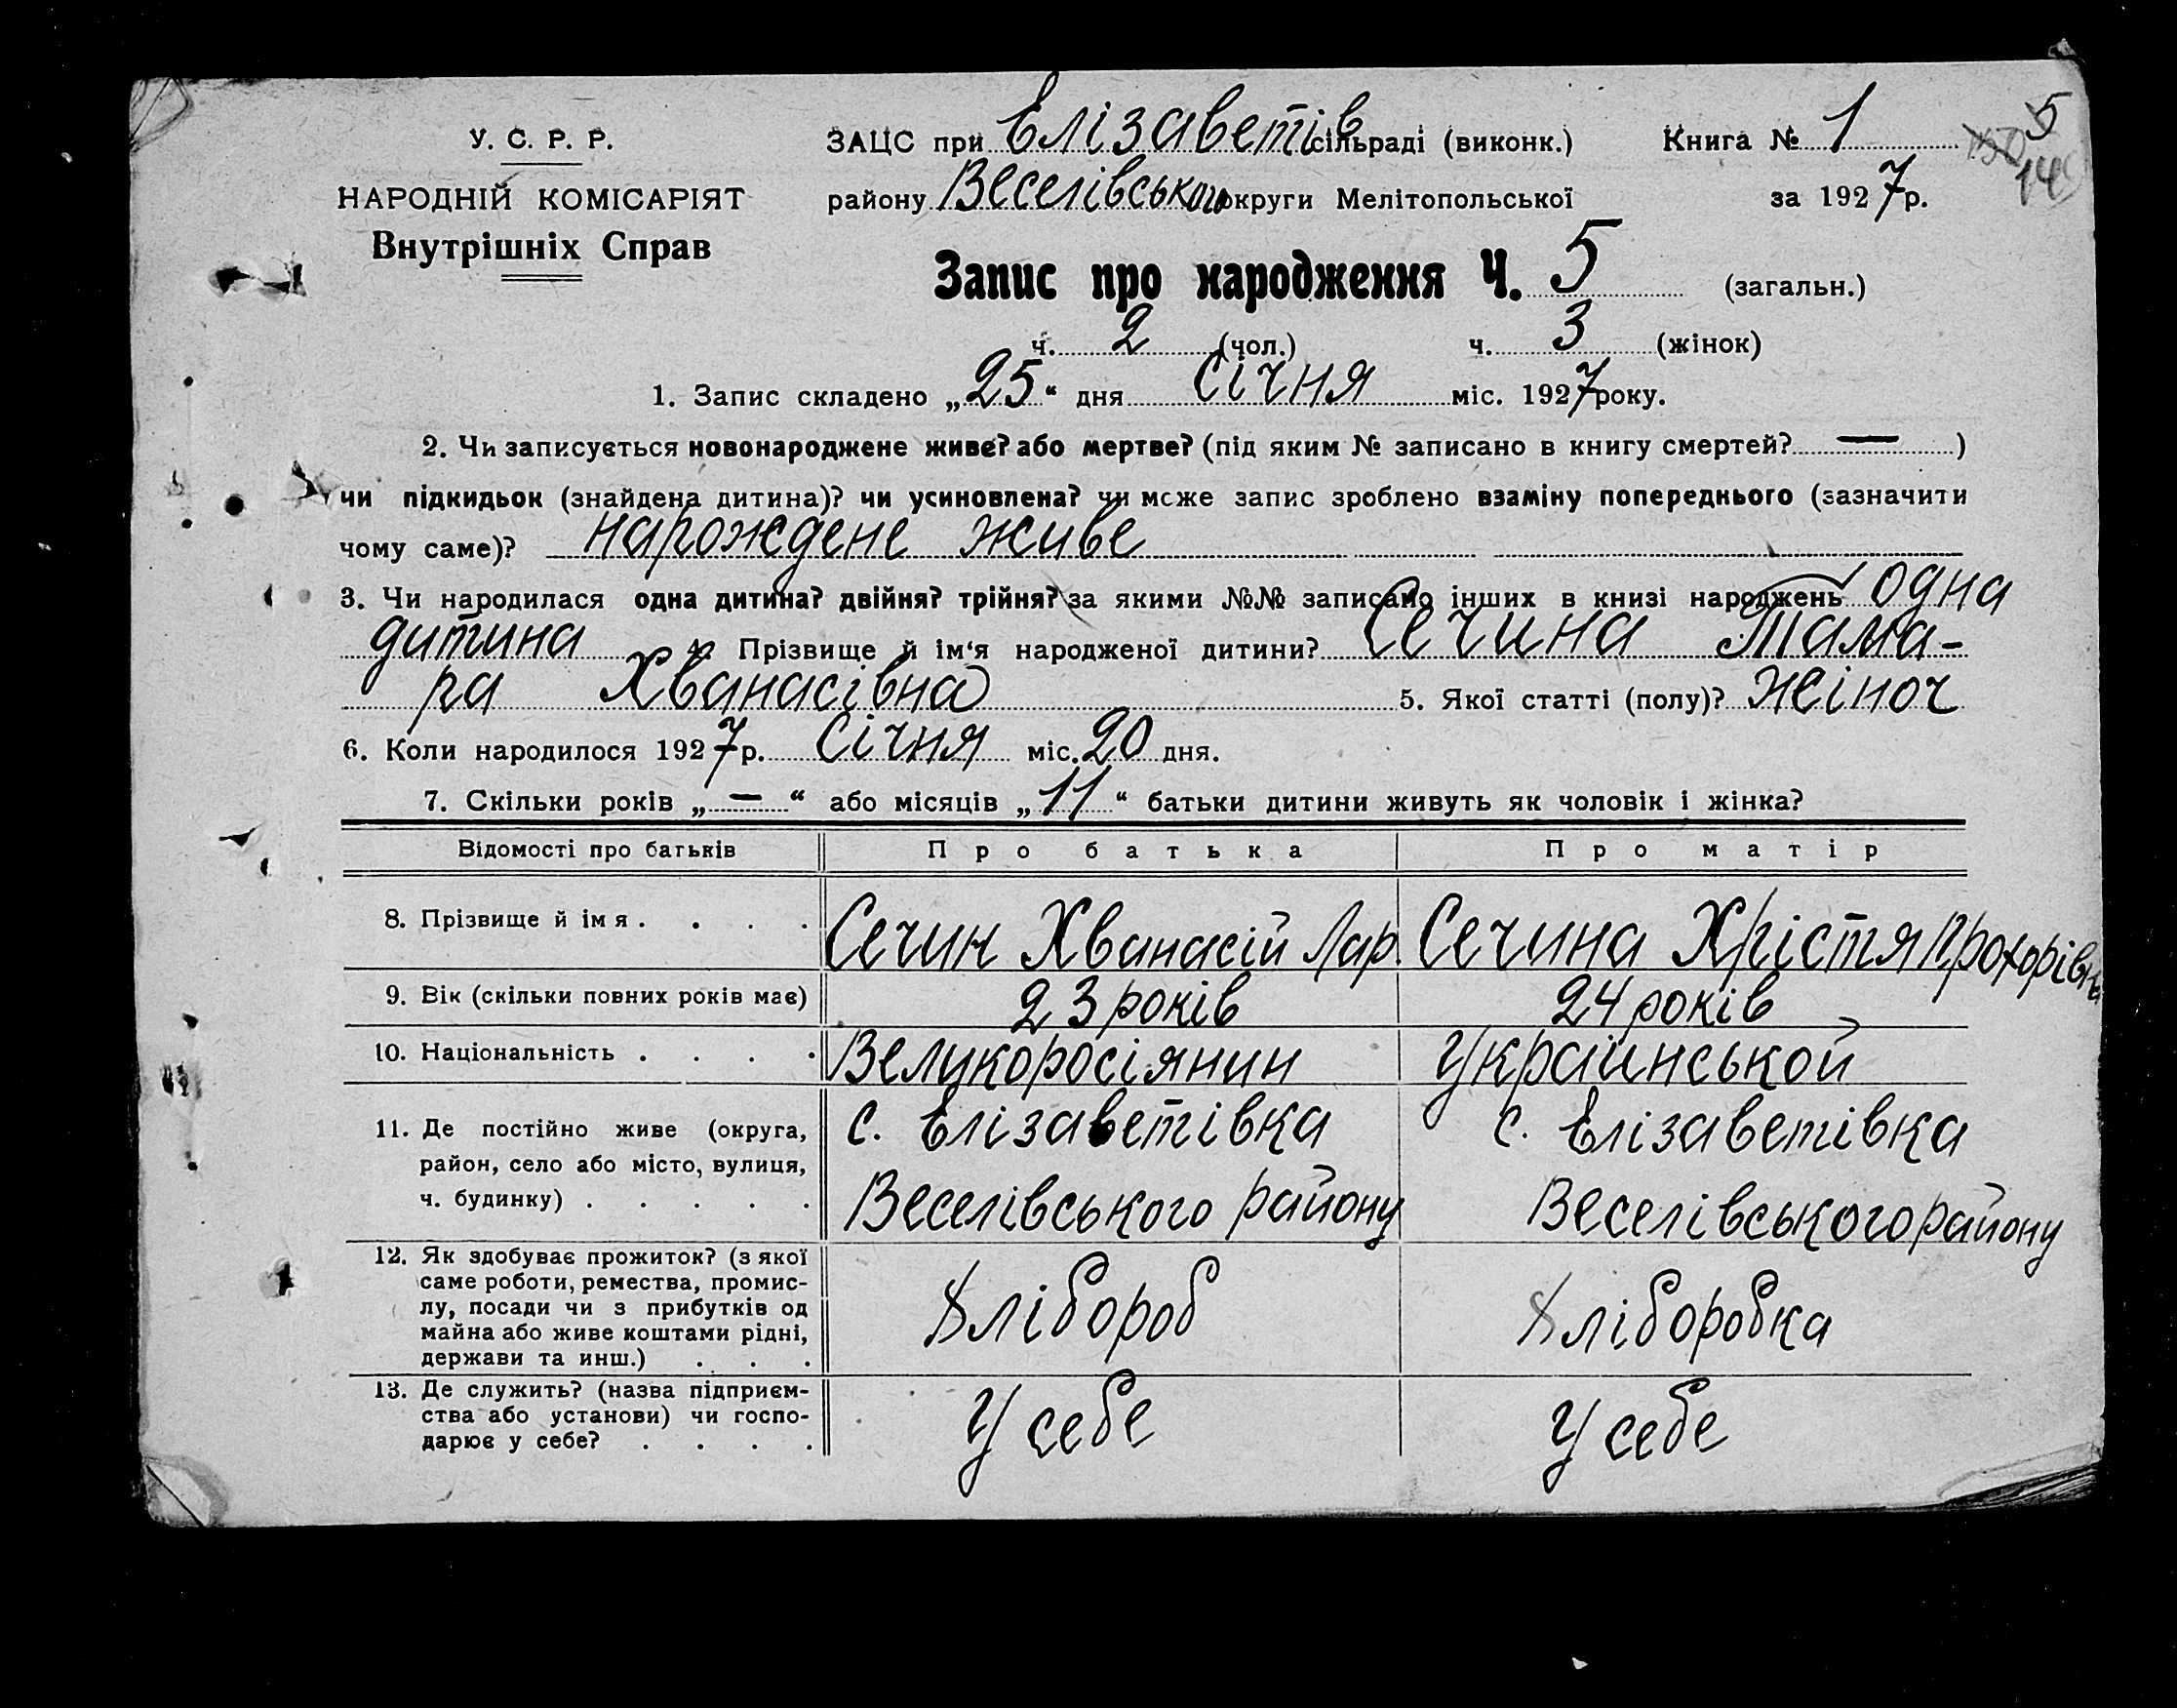 У. С. Р. Р.
НАРОДНІЙ КОМІСАРІЯТ
Внутрішніх Справ
ЗАЦС при Елізаветів сільраді (виконк.) Книга № 1
5
14
району Веселівського округи Мелітопольської за 1927 р.
Запис про народження Ч. 5 (загальн.)
ч. 2 (чол.) ч. 3 (жінок)
1. Запис складено „25“ дня Січня міс. 1927 року.
2. Чи записується новонароджене живе? або мертве? (під яким № записано в книгу смертей? — )
чи підкидьок (знайдена дитина)? чи усиновлена? чи може запис зроблено взаміну попереднього (зазначити
чому саме)? нарождене живе
3. Чи народилася одна дитина? двійня? трійня? за якими №№ записано інших в книзі народжень одна
дитина Прізвище й ім‘я народженої дитини? Сечина Тама-
ра Хванасівна 5. Якої статті (полу)? жіноч
6. Коли народилося 1927 р. Січня міс. 20 дня.
7. Скільки років „—“ або місяців „11“ батьки дитини живуть як чоловік і жінка?
Відомості про батьків Про батька Про матір
8. Прізвище й імя . . . . Сечин Хванасій Лар Сечина Хрістя Прохорівна
9. Вік (скільки повних років має) 23 років 24 років
10. Національність . . . . Великоросіянин Украинськой
11. Де постійно живе (округа, с. Елізаветівка с. Елізаветівка
район, село або місто, вулиця,
ч. будинку) . . . . . Веселівського району Веселівського району
12. Як здобуває прожиток? (з якої
саме роботи, ремества, промис-
лу, посади чи з прибутків од Хлібороб Хліборобка
майна або живе коштами рідні,
держави та инш.) . . .
13. Де служить? (назва підприєм-
ства або установи) чи госпо- У себе У себе
дарює у себе? . . . .